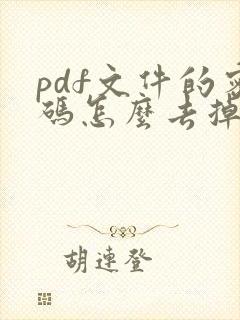 pdf文件的密
碼怎麼去掉
胡連登